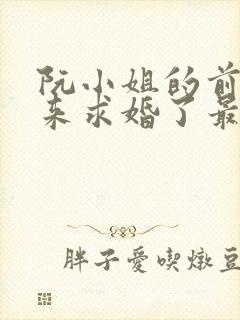 阮小姐的前
来求婚了最
胖子愛喫燉豆